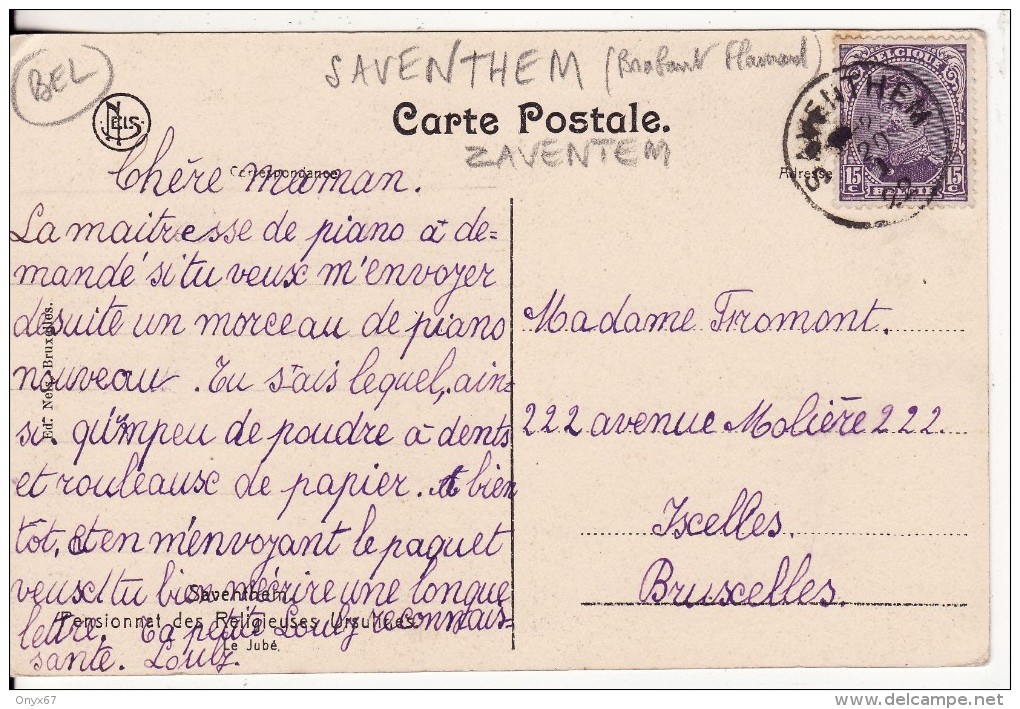 BEL
SAVENTHEM (Brabant Flamand)
NELS
Carte Postale.
ZAVENTEM
Correspondance
Adresse
BELGIQUE
15 c BELGIË 15 c
SAVENTHEM
20
Chère maman.
La maitresse de piano à de=
mandé si tu veux m'envoyer
desuite un morceau de piano
nouveau. Tu sais lequel, ain=
si qu'un peu de poudre à dents
et rouleaux de papier. A bien
tôt, et en m'envoyant le paquet
veux tu bien m'écrire une longue
lettre. Ta petite Loulz reconnais-
sante. Loulz.
Madame Fromont.
222 avenue Molière 222.
Ixelles.
Bruxelles.
Ed. Nels, Bruxelles.
Saventhem.
Pensionnat des Religieuses Ursulines.
Le Jubé.
Onyx67
delcampe.net